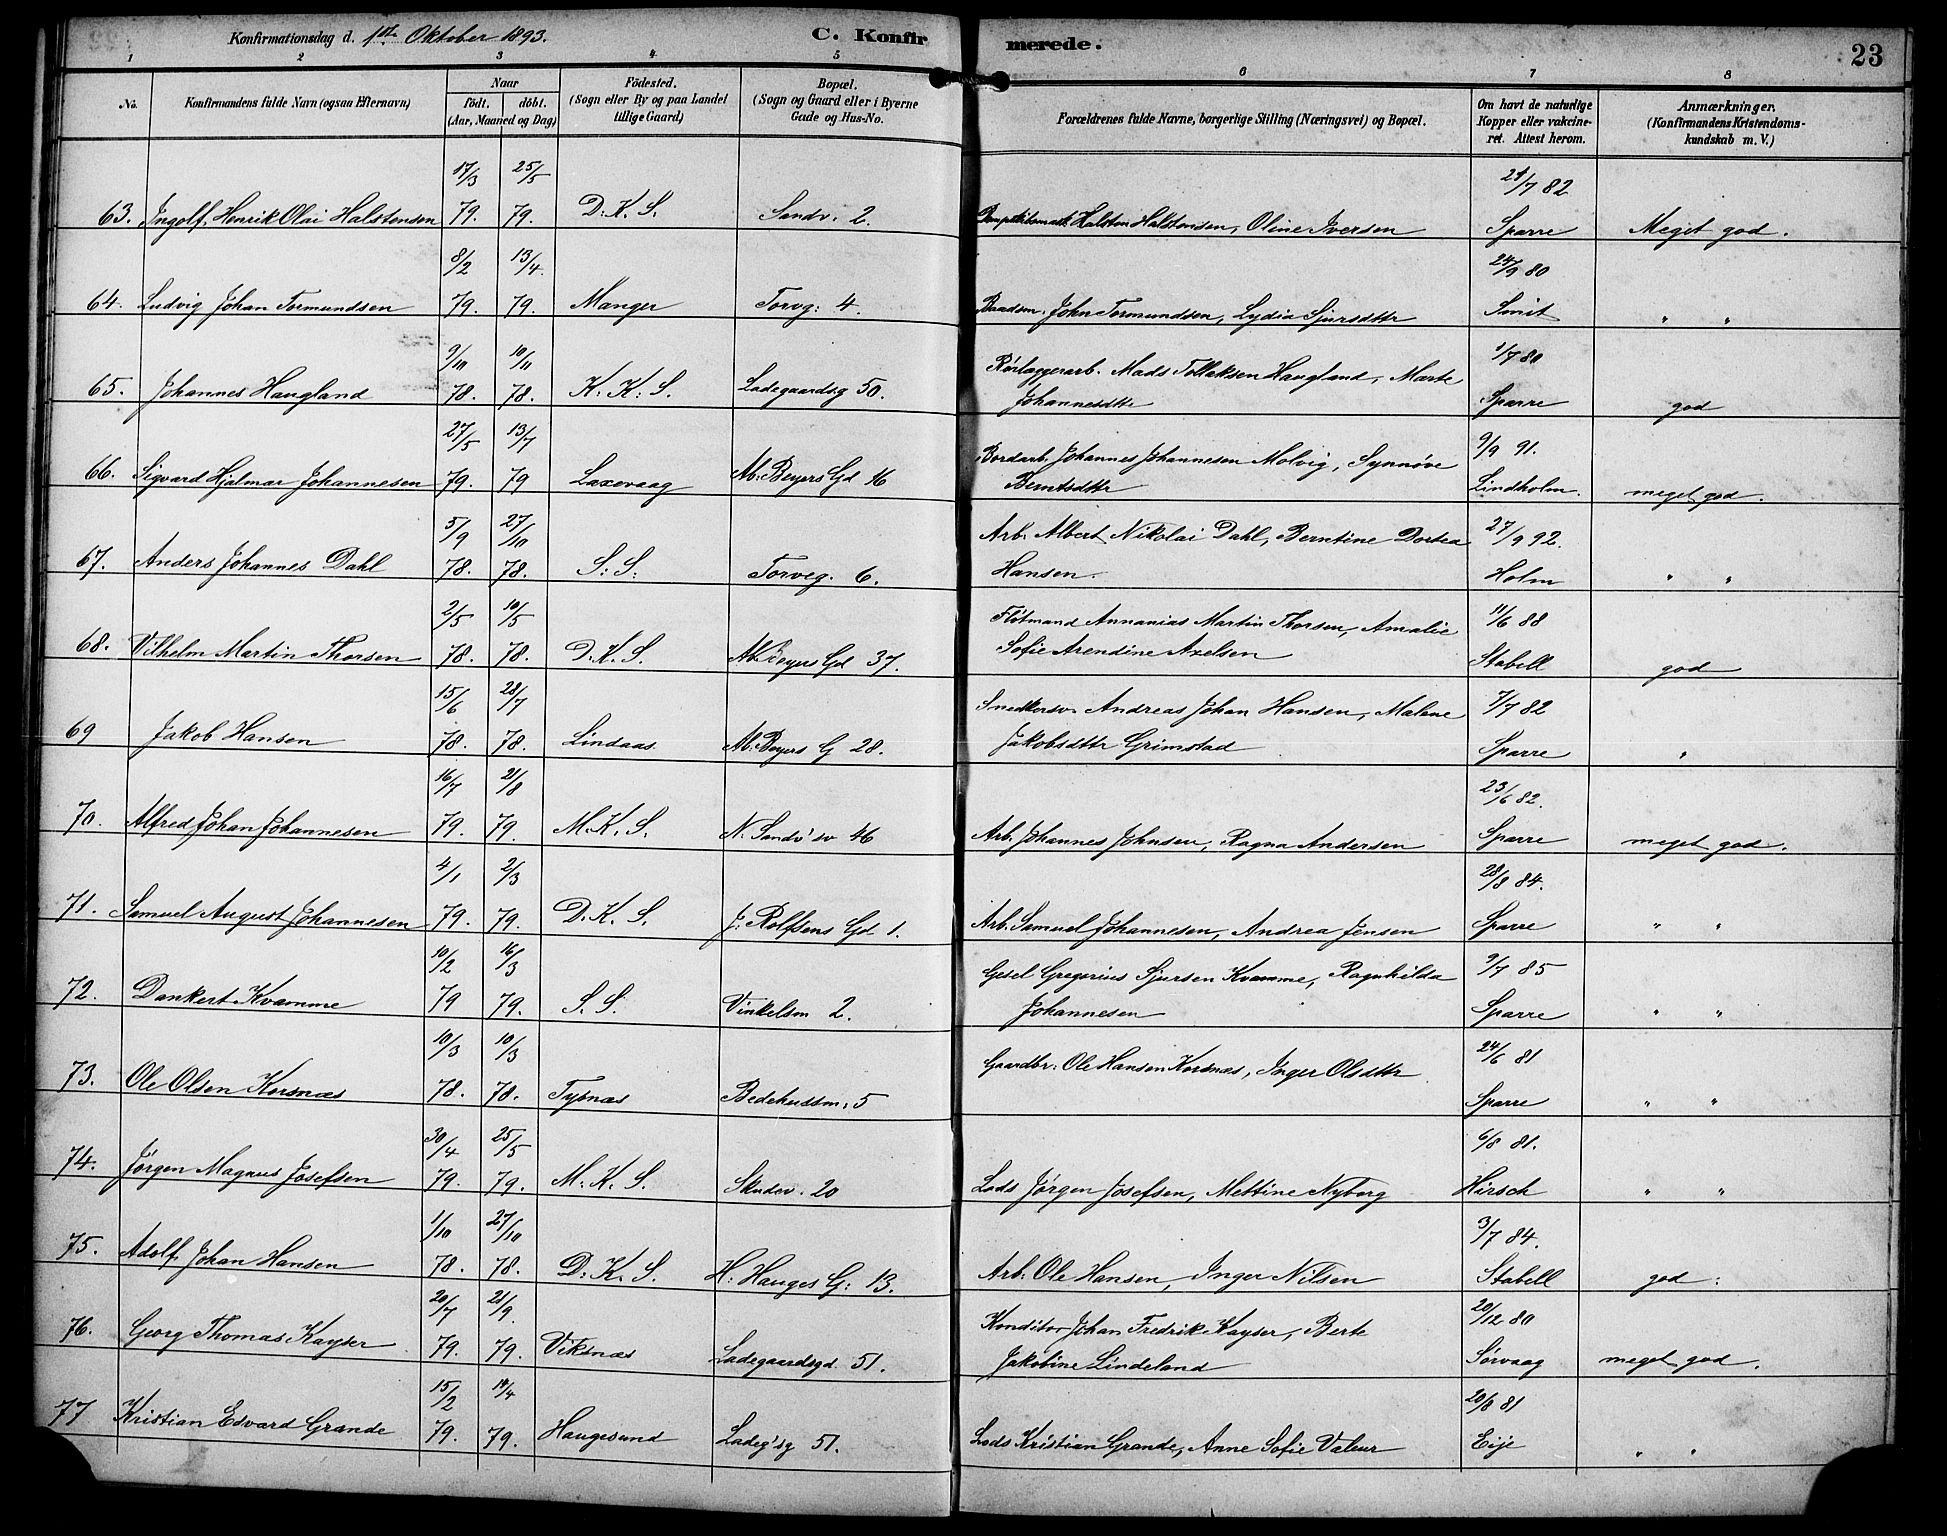 Konfirmationsdag d. 1ste Oktober 1893. C. Konfirmerede. 23
1 2 3 4 5 6 7 8
No. Konfirmandens fulde Navn (ogsaa Efternavn) Naar födt. döbt. (Aar, Maaned og Dag) Födested. (Sogn eller By og paa Landet tillige Gaard) Bopæl. (Sogn og Gaard eller i Byerne Gade og Hus-No. Forældrenes fulde Navne, borgerlige Stilling (Næringsvei) og Bopæl. Om havt de naturlige Kopper eller vakcineret. Attest herom. Anmærkninger. (Konfirmandens Kristendomskundskab m. V.)
17/3 25/5 21/7 82
63. Ingolf Henrik Olai Halstensen 79. 79. D. K. S. Sandv. 2. Halsten Halstensen, Oline Iversen Sparre Meget god.
8/2 13/4. 24/9 80
64. Ludvig Johan Tormundsen 79. 79. Manger Torvg: 4. Baadsm. John Tormundsen, Lydia Sjursdttr Smit " "
9/10 10/11 Rørlæggerarb. Mads Tollaksen Haugland, Marte 1/7 80
65. Johannes Haugland 78. 78. K. K. S. Ladegaardsg 50. Johannesdttr Sparre god
27/5 13/7 Bordarb. Johannes Johannesen Molvig, Synnøve 9/9 91.
66. Sigvard Hjalmar Johannesen 79. 79 Laxevaag Ab. Beyers Gd 16 Berntsdttr Lindholm. meget god.
5/9 27/10 Arb. Albert Nikolai Dahl, Berntine Dortea 27/9 92.
67. Anders Johannes Dahl 78. 78. S. S. Torveg. 6. Hansen. Holm " "
2/5 10/5 Fløtmand Annanias Martin Thorsen, Amalie 11/6 88
68. Vilhelm Martin Thorsen 78. 78. D. K. S. Ab. Beyers Gd 37. Sofie Arendine Axelsen Stabell god
15/6 28/7 Snedkersv. Andreas Johan Hansen, Malene 7/7 82
69 Jakob Hansen 78. 78. Lindaas Ab. Beyers G 28. Jakobsdttr Grimstad Sparre "
16/7 21/8 23/6 82.
70. Alfred Johan Johannesen 79. 79. M. K. S. N. Sandv'sv 46 Arb. Johannes Johnsen, Ragna Andersen Sparre meget god.
4/1 2/3 28/8 84.
71. Samuel August Johannesen 79. 79. D. K. S. J. Rolfsens Gd 1. Arb. Samuel Johannesen, Andrea Jensen Sparre " "
10/2 16/3 Gesel Gregorius Sjursen Kvamme, Ragnhilda 9/7 85
72. Dankert Kvamme 79 79. S. S. Vinkelsm 2. Johannesen Sparre " "
10/3 10/3 Gaardbr. Ole Hansen Korsnæs, Inger Olsdttr 24/6 81
73. Ole Olsen Korsnæs 78. 78. Tysnæs Bedehussm. 5 Sparre " "
30/4 25/5 6/8 81.
74. Jørgen Magnus Josefsen 79. 79. M. K. S. Skudev. 20 Lods Jørgen Josefsen, Mettine Nyborg Hirsch " "
1/10 27/10 3/7 84.
75. Adolf Johan Hansen 78. 78. D. K. S. H. Hauges G: 13. Arb. Ole Hansen, Inger Nilsen Stabell god.
20/7 21/9. Konditor Johan Fredrik Kayser, Berte 20/12 80
76. Georg Thomas Kayser 79. 79. Viksnæs Ladegaardsgd. 51. Jakobine Lindeland Sørvaag meget god.
15/2 14/4 20/8 81
77 Kristian Edvard Grande 79. 79. Haugesund Ladeg'sg 51. Lods Kristian Grande, Anne Sofie Valeur Eije " "